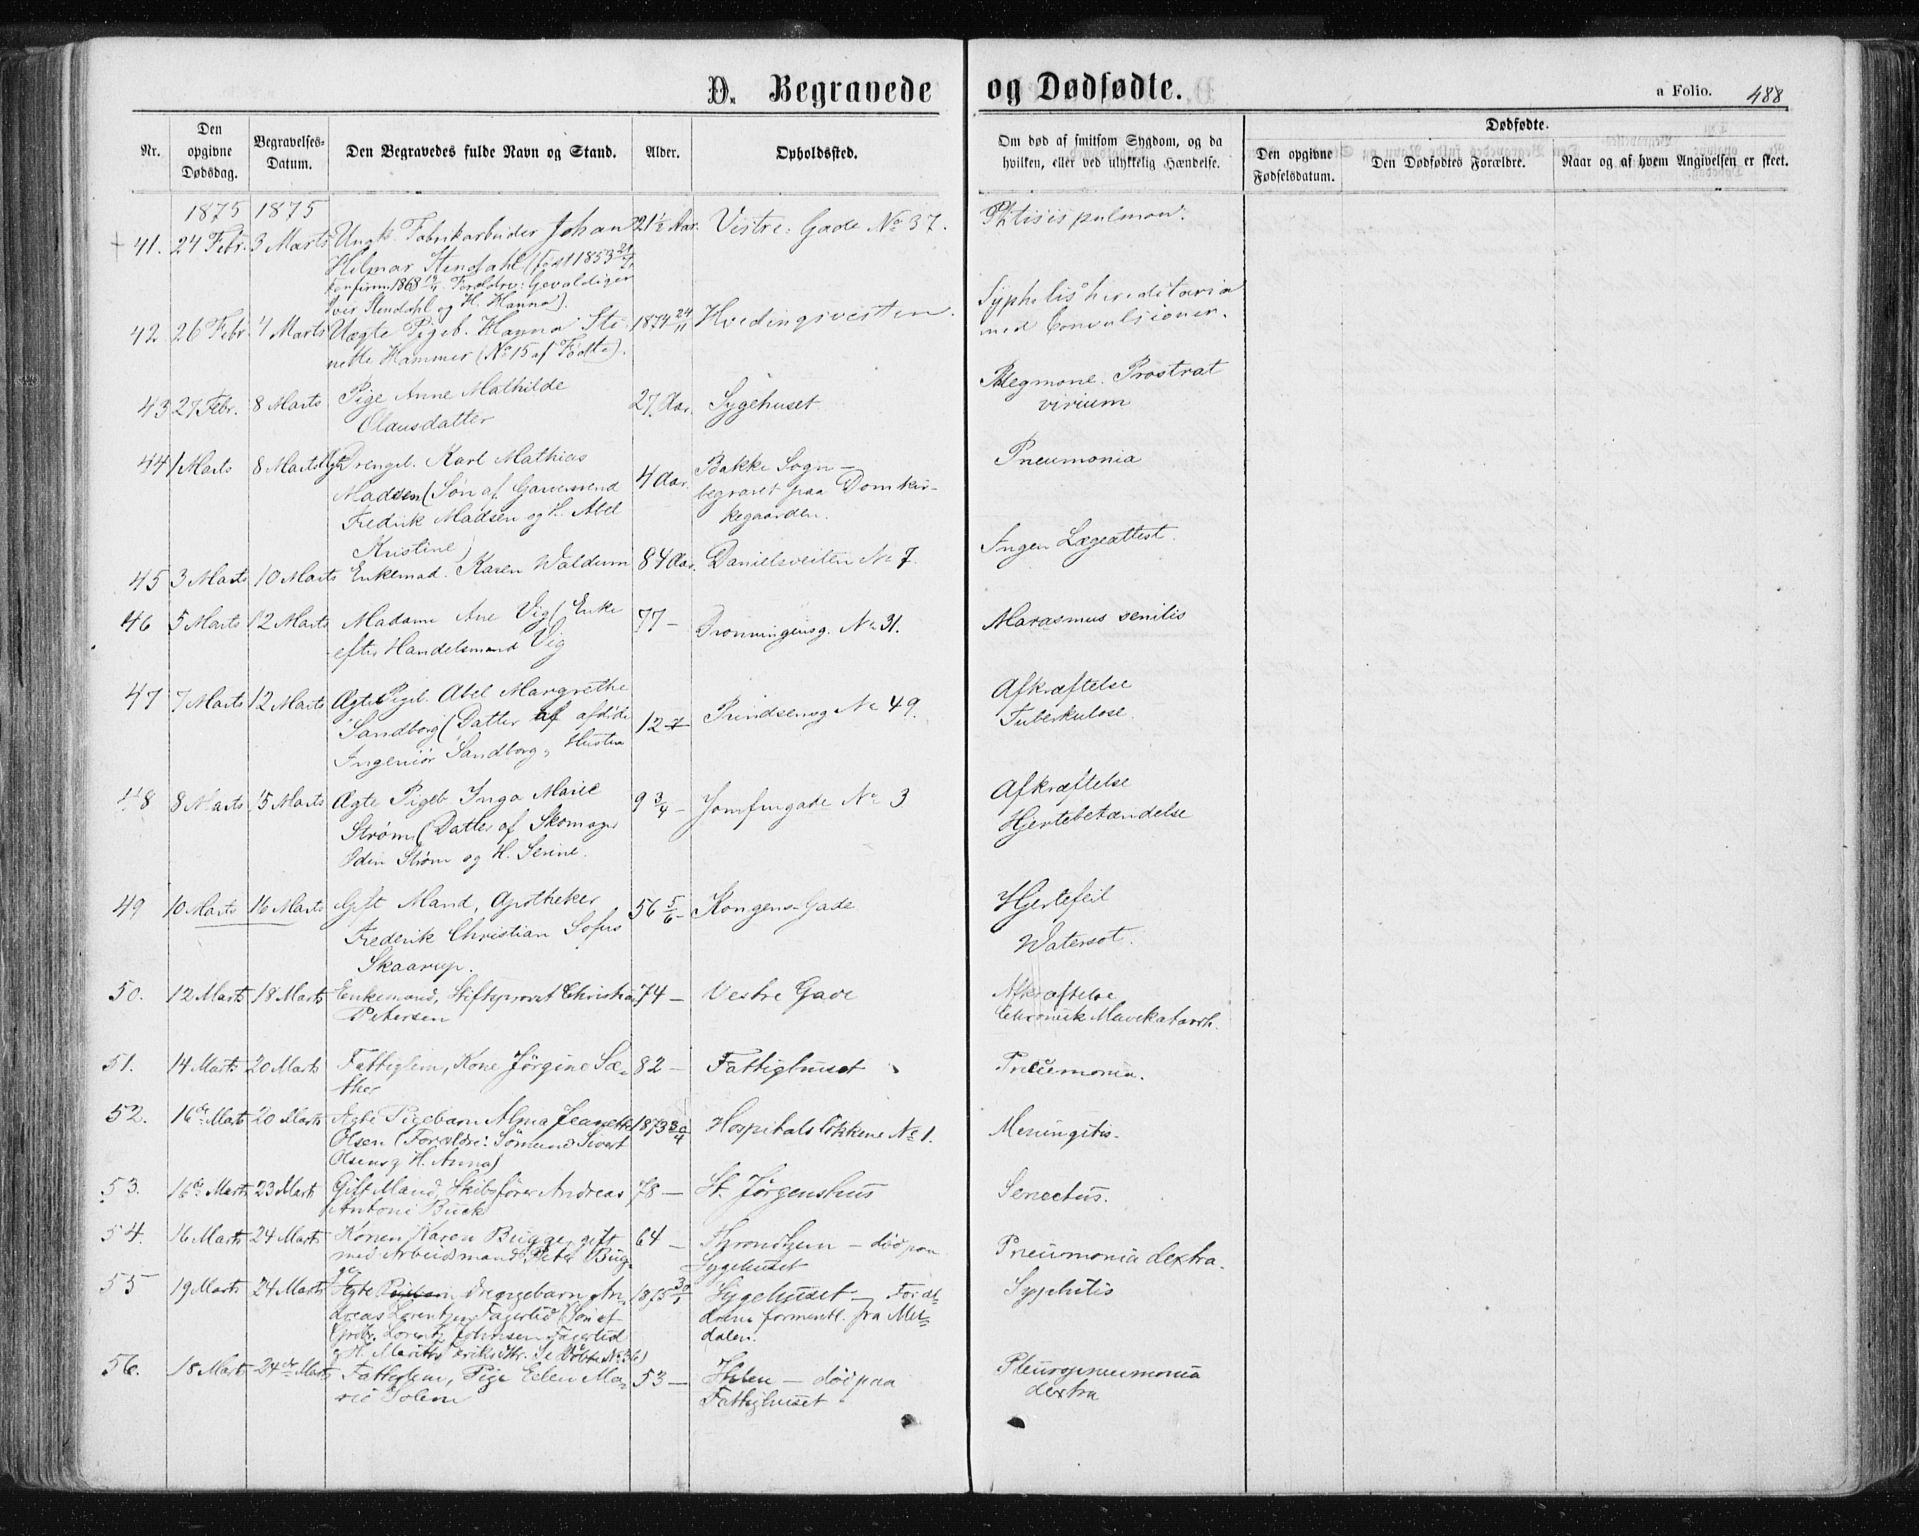 D. Begravede og Dødfødte.
a Folio. 488
Nr.
Den opgivne Dødsdag.
Begravelses-Datum.
Den Begravedes fulde Navn og Stand.
Alder.
Opholdssted.
Om død af smitsom Sygdom, og da hvilken, eller ved ulykkelig Hændelse.
Dødfødte.
Den opgivne Fødselsdatum.
Den Dødfødtes Forældre.
Naar og af hvem Angivelsen er skeet.
1875 1875
41. 24 Febr. 3 Marts Ungk. Fabrikarbeider Johan 21½ Aar. Vestre Gade No 37. Phtisis pulmon.
Hilmar Stendahl (født 1853 21/
konfirm. 1868 Forældre: Gevaldiger
Iver Stendahl og H. Hanna).
42 26 Febr. 4 Marts Uægte Pigeb. Hanna Sti- 1874 24/11 Hvedingsveiten. Syphilis hereditaria
nette Hammer (No 15 af Fødte). med Convulsioner.
43 27 Febr. 8 Marts Pige Anne Mathilde 27 Aar. Sygehuset Phlegmone. Prostrat
Olausdatter virium
44 1 Marts 8 Marts Ægte Drengeb. Karl Mathias 4 Aar. Bakke Sogn – Pneumonia
Madsen (Søn af Garversvend begravet paa Domkir-
Fredrik Madsen og H. Abel kegaarden.
Kristine)
45 3 Marts 10 Marts Enkemad. Karen Waldum 84 Aar. Danielsveiten No 7. Ingen Lægeattest.
46 5 Marts 12 Marts Madame Ane Vig (Enke 77 – Dronningensg. No 31. Marasmus senilis
efter Handelsmand Vig
47 7 Marts 12 Marts Ægte Pigeb. Abel Margrethe 12 – Prindsensg No 49. Afkræftelse
Sandborg (Datter af afdøde Tuberkulose.
Ingeniør Sandborg, Hustru
48 8 Marts 15 Marts Ægte Pigeb Inga Marie 9 3/4 – Jomfrugade No 3 Afkræftelse
Strøm (Datter af Skomager Hjertebetændelse
Odin Strøm og H. Serine.
49 10 Marts 16 Marts Gift Mand, Apotheker 56 5/6 – Kongens Gade Hjertefeil
Frederik Christian Sofus Watersot.
Skaarup.
50. 12 Marts 18 Marts Enkemand, Stiftsprovst Christian 74 – Vestre Gade Afkræftelse
Petersen Chronisk Mavekatarrh.
51. 14 Marts 20 Marts Fattiglem, Kone Jørgine Sæ- 82 – Fattighuset Pneumonia.
ther
52. 16de Marts 20 Marts Ægte Pigebarn Alma Jeanette 1873 30/4 Hospitalsløkkene No 1. Meningitis.
Olsen (Forældre: Sømand Sivert
Olsen og H. Anna)
53. 16de Marts 23 Marts Gift Mand, Skibsfører Andreas 78 – St. Jørgenshus Senectus.
Antoni Buck
54. 16 Marts 24 Marts Konen Karen Bugge, gift 64 – Throndhjem – død paa Pneumonia dextra.
med Arbeidsmand Peter Bug- Sygehuset
ge
55 19 Marts 24 Marts Ægte Pigebarn Drengebarn An- 1875 30/1 Sygehuset – Foræl- Syphilis
dreas Lorentzen Fagerlid (Søn af drene formentl. fra Mel-
Lorentz Johnsen Fagerlid dalen.
og H. Marith Eriksdtr. Se Døbte No 36)
56. 18 Marts 24de Marts Fattiglem, Pige Ellen Ma- 53 – Ihlen – død paa Pleuropneumonia
rie Solem Fattighuset dextra